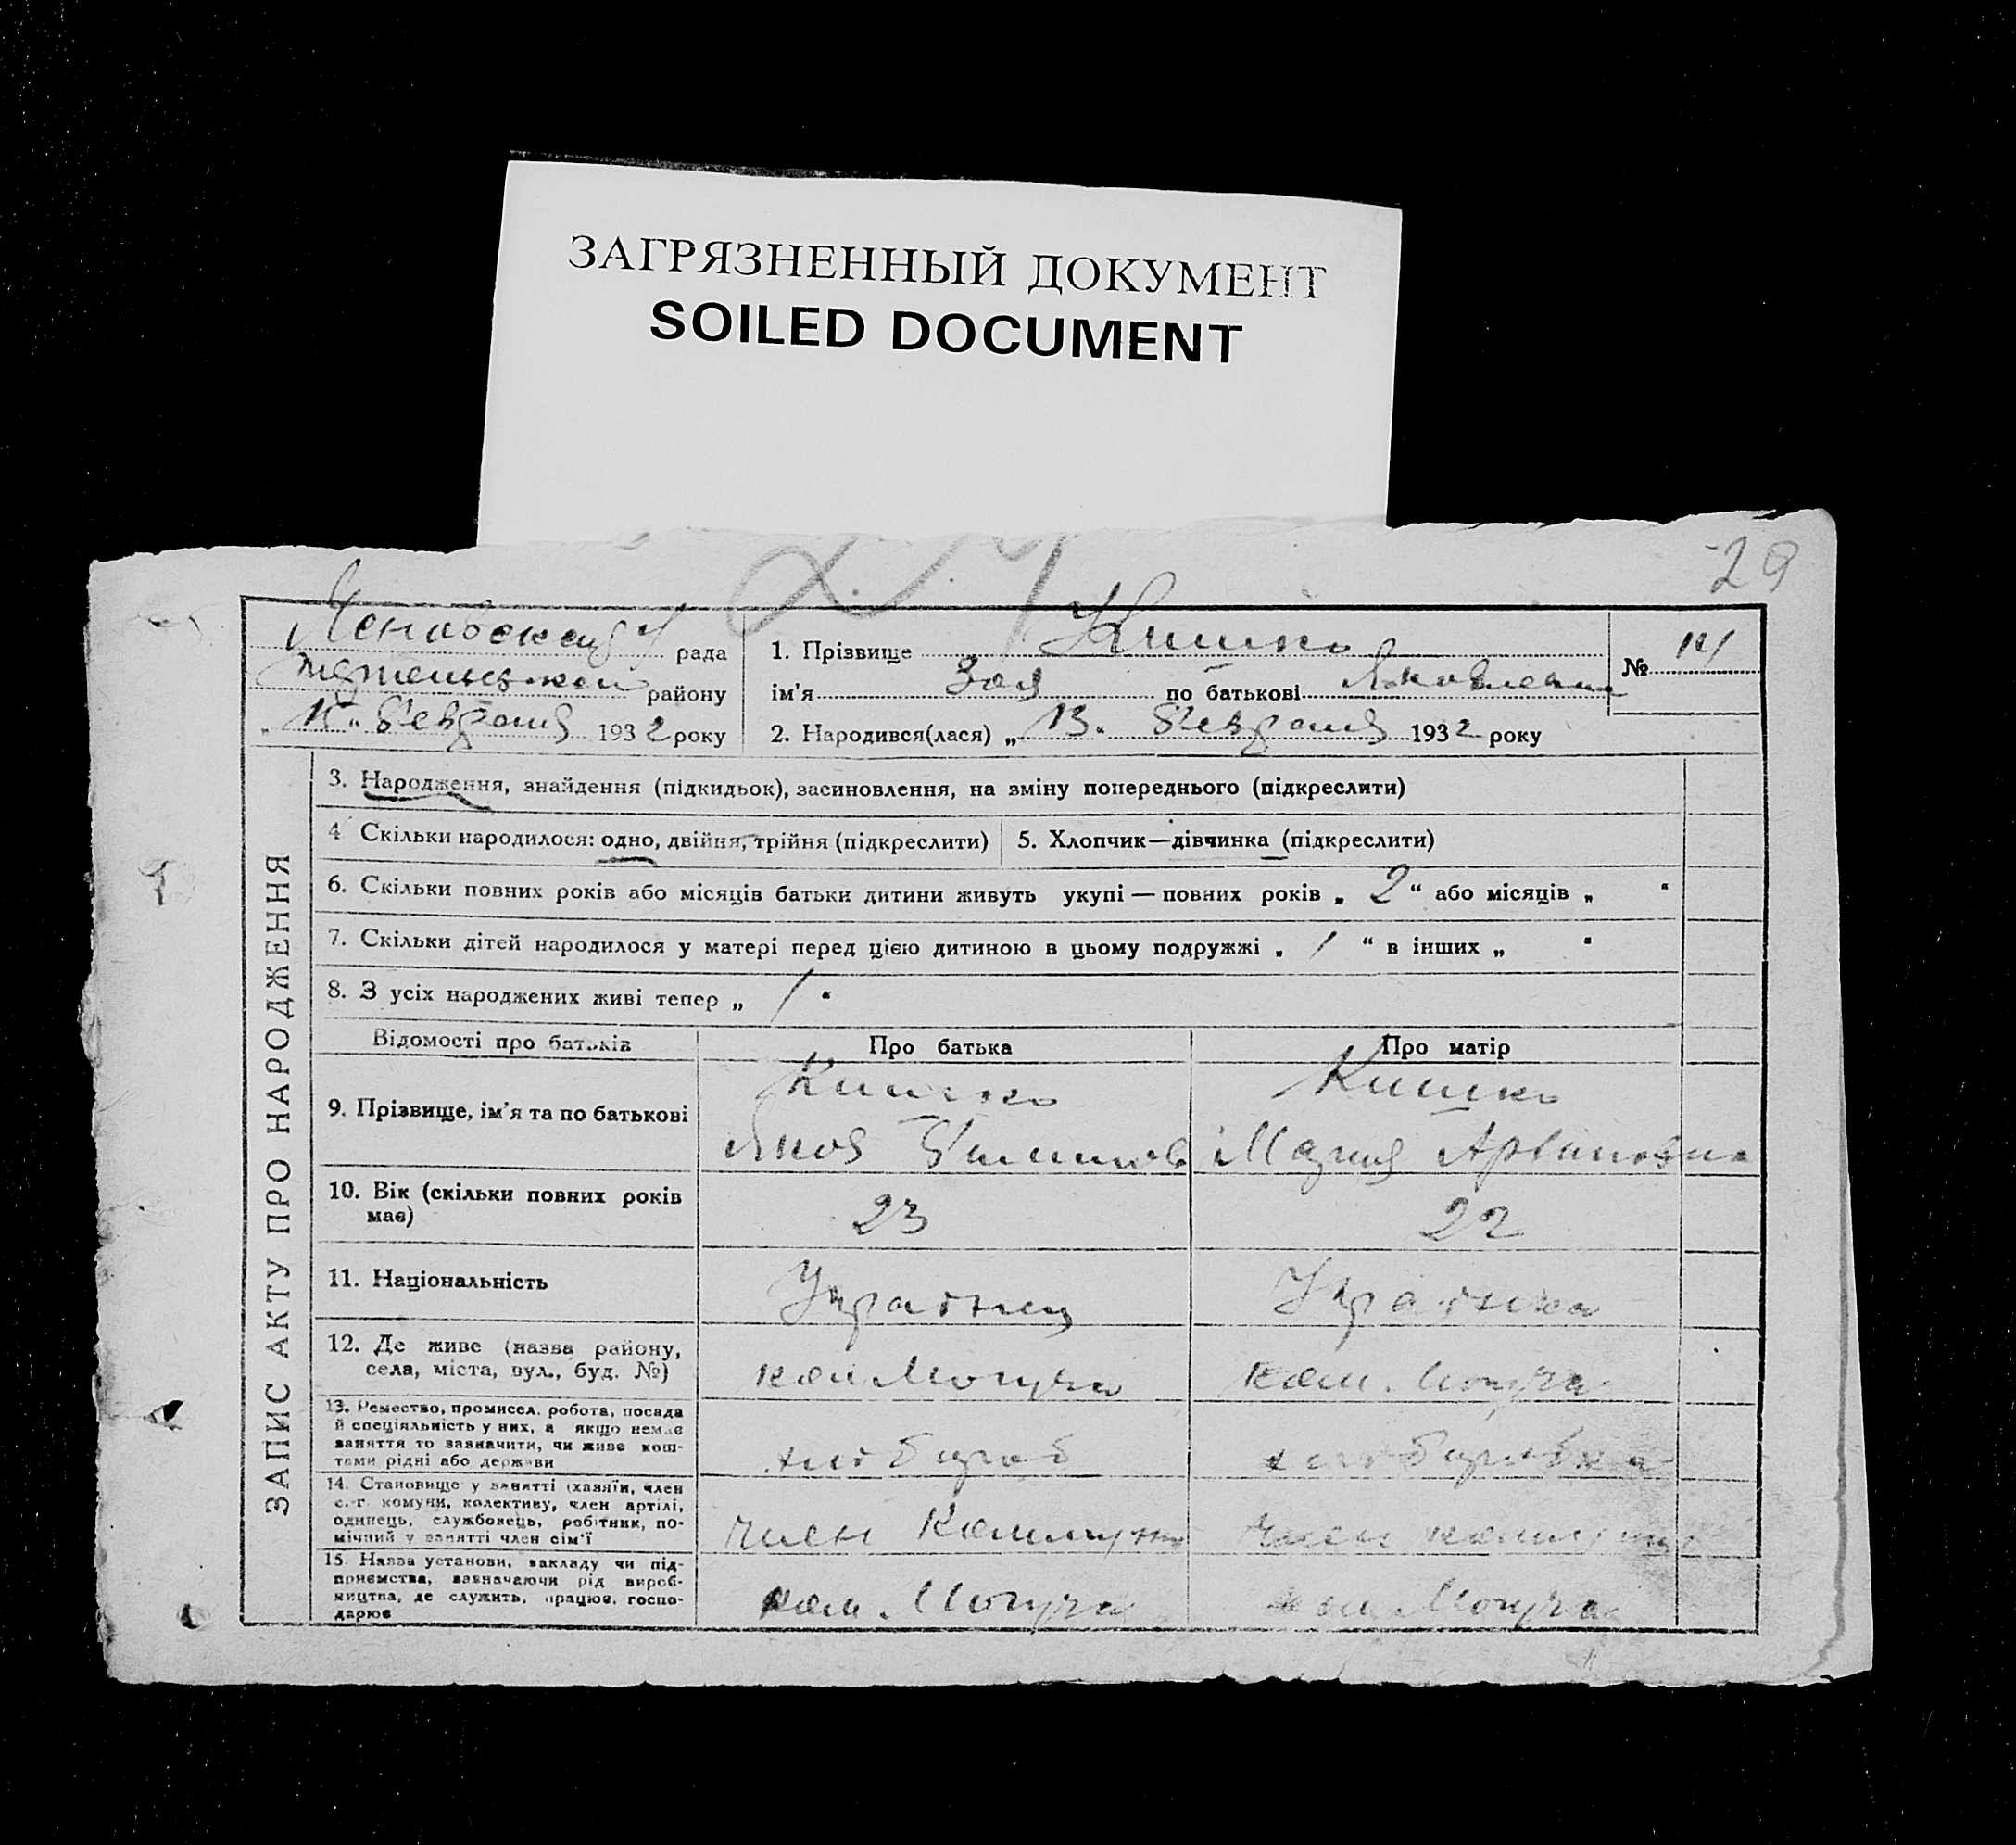 ЗАГРЯЗНЕННЫЙ ДОКУМЕНТ
SOILED DOCUMENT
29
рада
району
февраля 1932 року
1. Прізвище Кишко
ім'я Зоя по батькові Яковлевна
№
2. Народився(лася) „13" февраля 1932 року
ЗАПИС АКТУ ПРО НАРОДЖЕННЯ
3. Народження, знайдення (підкидьок), засиновлення, на зміну попереднього (підкреслити)
4 Скільки народилося: одно, двійня, трійня (підкреслити)
5. Хлопчик—дівчинка (підкреслити)
6. Скільки повних років або місяців батьки дитини живуть укупі — повних років „ 2 “ або місяців „ "
7. Скільки дітей народилося у матері перед цією дитиною в цьому подружжі „ 1 “ в інших „ "
8. З усіх народжених живі тепер „ 1 "
Відомості про батьків
Про батька
Про матір
9. Прізвище, ім'я та по батькові
Кишко
Яков
Кишко
Мария
10. Вік (скільки повних років
має)
23
22
11. Національність
Украінец
Украінка
12. Де живе (назва району,
села, міста, вул., буд. №)
ком. Могуча
ком. Могуча
13. Ремество, промисел, робота, посада
й спеціяльність у них, а якщо немає
заняття то зазначити, чи живе кош-
тами рідні або держави
хлібороб
хліборобка
14. Становище у занятті (хазяїн, член
с.-г. комуни, колективу, член артілі,
одинець, службовець, робітник, по-
мічний у занятті член сім'ї
член коммуни
член коммуни
15. Назва установи, закладу чи під-
приємства, зазначаючи рід вироб-
ництва, де служить, працює, госпо-
дарює
ком. Могуча
ком. Могуча